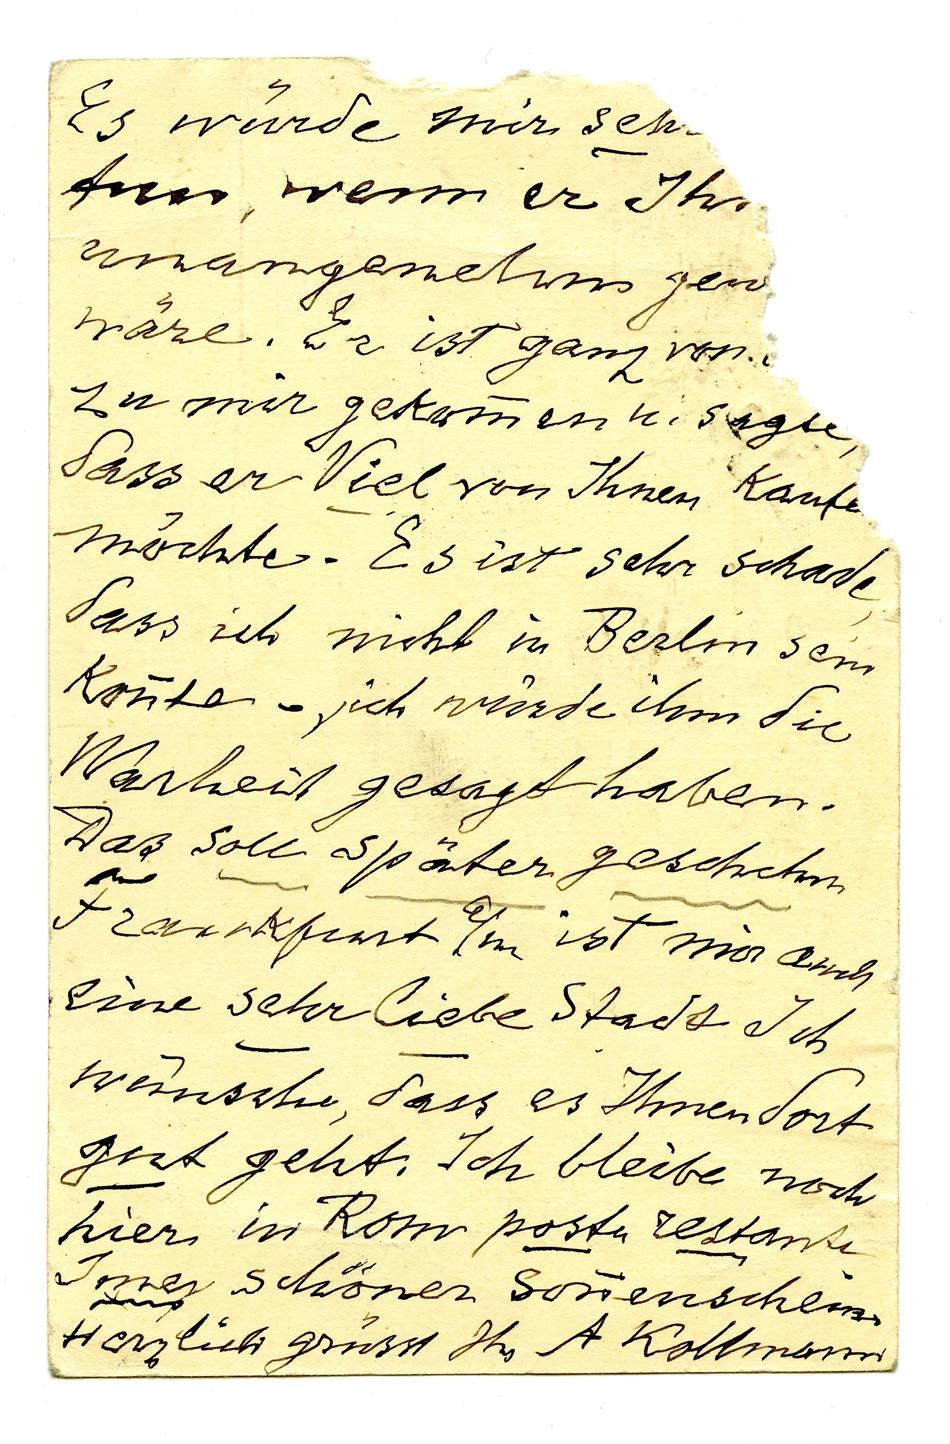 Es würde mir sehr
tun, wenn er Ihn
unangenehm gew
wäre. Er ist ganz von
zu mir gekom̄en u. sagte,
dass er Viel von Ihnen Kaufe
möchte. Es ist sehr schade,
dass ich nicht in Berlin sein
Kon̄te – ich würde ihm die
Warheit gesagt haben.
Das soll später geschehen
Frankfurt a/m ist mir auch
eine sehr liebe Stadt Ich
wünsche, dass es Ihnen dort
gut geht. Ich bleibe noch
hier in Rom poste restante
Im̄er schöner Son̄enschein
Herzlich grüsst Ihr A Kollmann